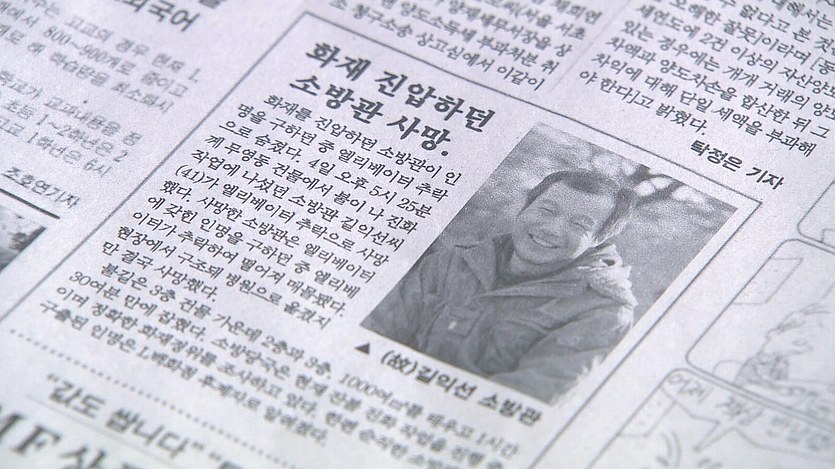 외국어
800~900개로 줄이고
초등 1~2학년은 2
조호연기자
세현도에 2건 이상의 자산양
있는 경우에는 개개 거래의 양
차액과 양도차손을 합산한 뒤 그
차익에 대해 단일 세액을 부과해
야 한다고 밝혔다.
탁정은 기자
화재 진압하던
소방관 사망.
화재를 진압하던 소방관이 인
명을 구하던 중 엘리베이터 추락
으로 숨졌다. 4일 오후 5시 25분
께 무영동 건물에서 불이 나 진화
작업에 나섰던 소방관 길익선씨
(41)가 엘리베이터 추락으로 사망
했다. 사망한 소방관은 엘리베이터
에 갇힌 인명을 구하던 중 엘리베
이터가 추락하여 떨어져 매몰됐다.
현장에서 구조돼 병원으로 옮겼지
만 결국 사망했다.
불길은 3층 건물 가운데 2층과 3층 1000여㎡를 태우고 1시간
30여분 만에 잡혔다. 소방당국은 현재 잔불 진화 작업을 진행 중
이며 정확한 화재경위를 조사하고 있다. 한편 순직한 소방
구출된 인명은 L백화점 후계자로 알려졌다.
▲ (故)길익선 소방관
"값도 쌉니다"
MF